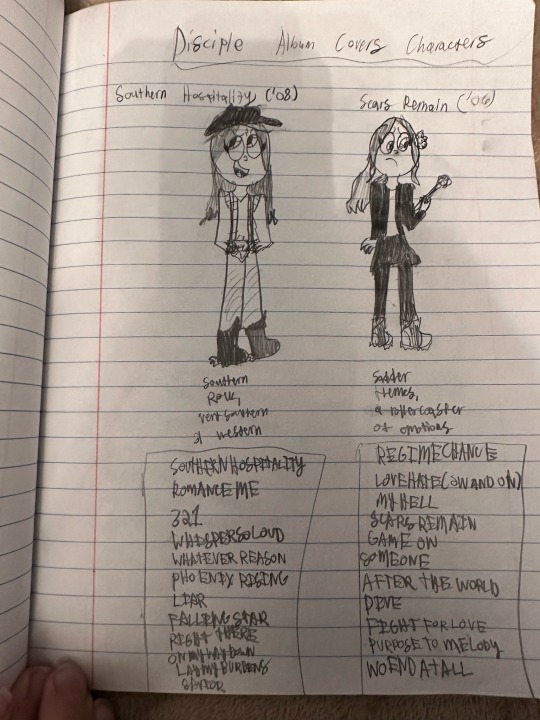 Disciple Album Covers Characters
Southern Hospitality ('08)
Southern
Rock,
very southern
& western
SOUTHERN HOSPITALITY
ROMANCE ME
321
WHISPER SO LOUD
WHATEVER REASON
PHOENIX RISING
LIAR
FALLING STAR
RIGHT THERE
ON MY WAY DOWN
LAY MY BURDENS
SAVIOR
Scars Remain ('06)
Sadder
themes,
a rollercoaster
of emotions
REGIME CHANGE
LOVE HATE (ON AND ON)
MY HELL
SCARS REMAIN
GAME ON
SOMEONE
AFTER THE WORLD
DIVE
FIGHT FOR LOVE
PURPOSE TO MELODY
NO END AT ALL